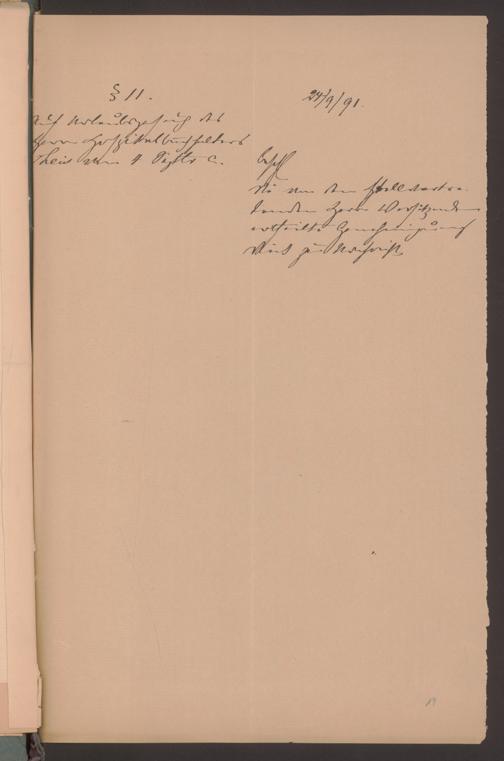 § 11.
24/9/91.
Auf Urlaubsgesuch des
Herrn Hospitalbuchhalters
Theis vom 4 Septbr c.
beschl
die von dem stellvertre-
tenden Herrn Vorsitzenden
ertheilte Genehmigung
dient zur Nachricht
19